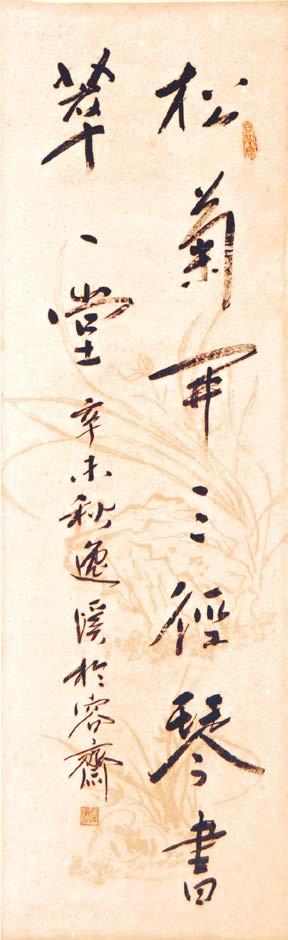 松菊開三徑琴書
萃一堂 辛未秋逸溪於容齋